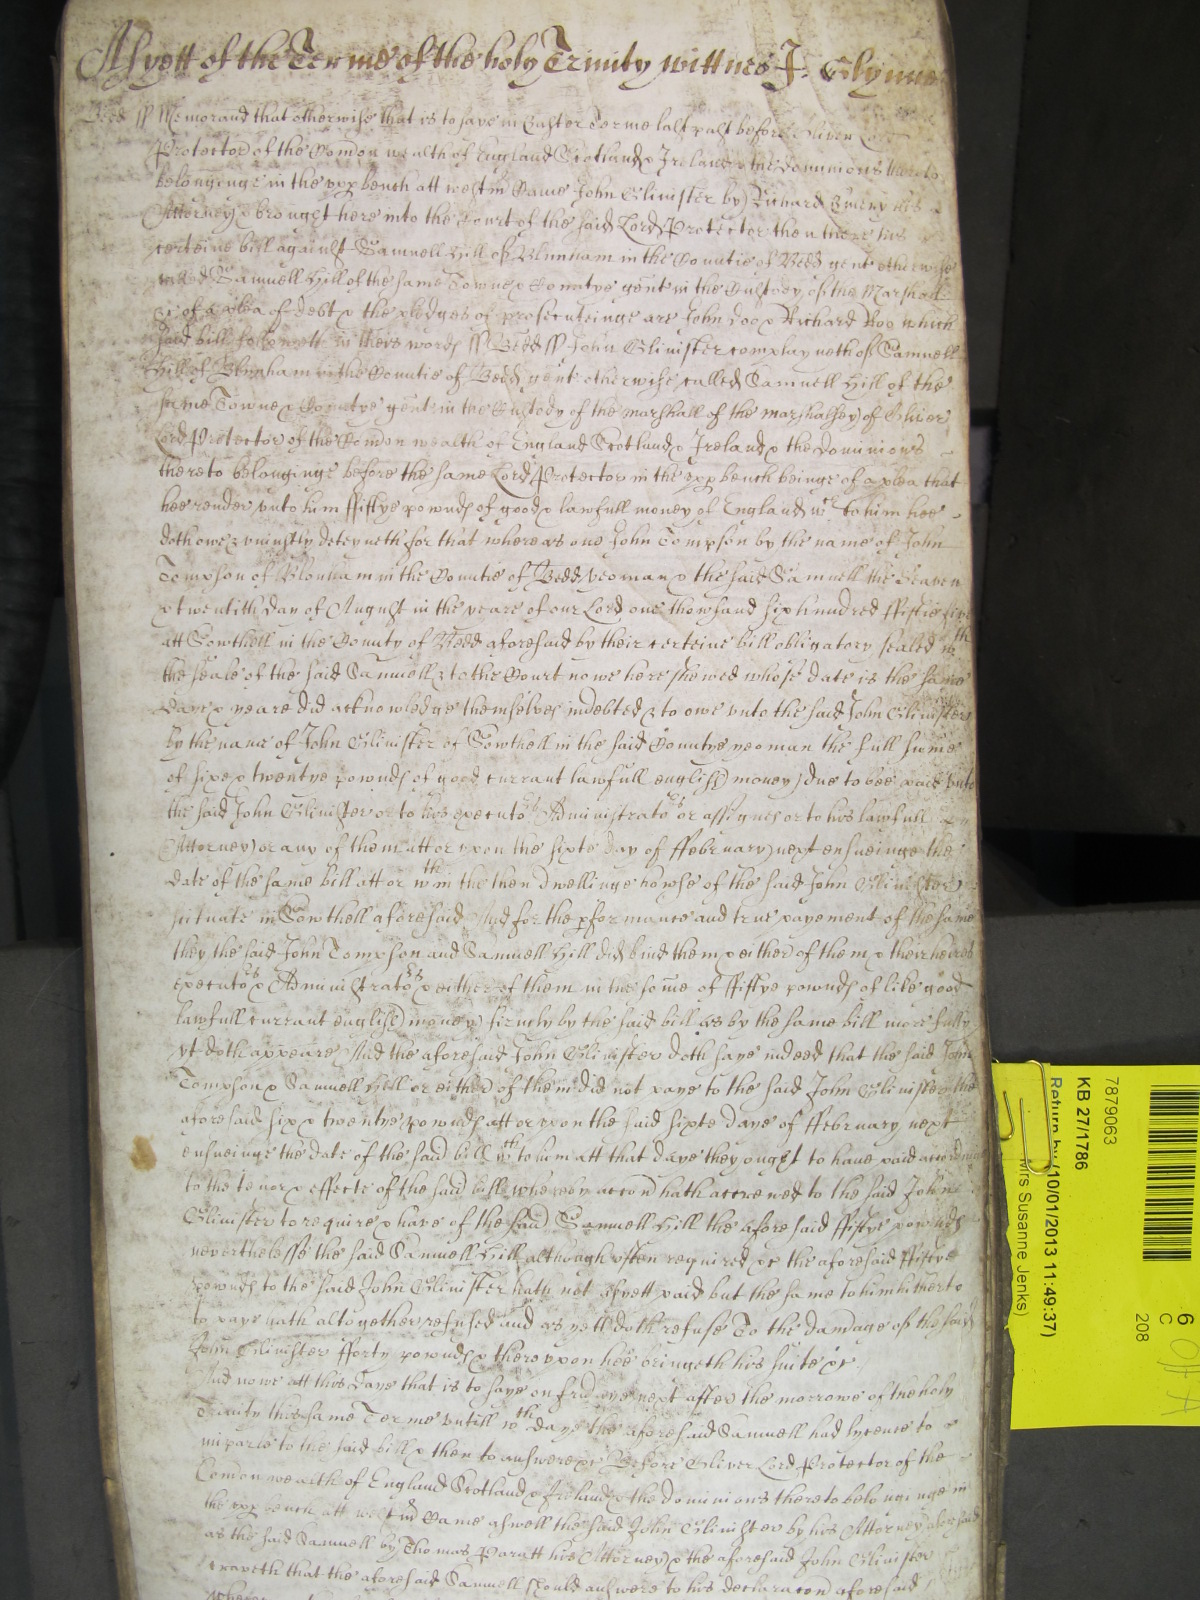 As yett of the Terme of the holy Trinity wittnes J: Glynne
Bedd ss Memorand that otherwise that is to saye in Easter Terme last past before Oliver Lord
Protector of the Comon wealth of England Scotland & Ireland & the dominions thereto
belonginge in the upp bench att westm̃ Came John Glinister by Richard Emery his
Attorney & brought here into the Court of the said Lord Protector then there his
certeine bill against Samuell Hill of Blunham in the Countie of Bedd gent otherwise
called Samuell Hill of the same Towne & Countye gent in the Custody of the Marshall
&c of a plea of debt & the pledges of prosecuteinge are John Doo & Richard Roo which
said bill followeth in theis words ss Bedd ss John Glinister complayneth of Samuell
Hill of Blunham in the Countie of Bedd gent otherwise called Samuell Hill of the
same Towne & Countye gent in the Custody of the marshall of the marshalsey of Oliver
Lord Protector of the Comon wealth of England Scotland & Ireland & the dominions
thereto belonginge before the same Lord Protector in the upp bench beinge of a plea that
hee render unto him ffiftye pownds of good & lawfull money of England wch to him hee
doth owe & uniustly deteyneth for that whereas one John Tompson by the name of John
Tompson of Blunham in the Countie of Bedd yeoman & the said Samuell the Seaven
& twentith day of August in the yeare of our Lord one thowsand six hundred ffiftie five
att Sowthell in the County of Bedd aforesaid by their certeine bill obligatory sealed wth
the seale of the said Samuell & to the Court nowe here shewed whose date is the same
daye & yeare did acknowledge themselves indebted & to owe unto the said John Glinister
by the name of John Glinister of Sowthell in the said Countye yeoman the full sume
of sixe & twentye pownds of good currant lawfull english money due to bee paid unto
the said John Glinister or to his executors Administrators or assignes or to his lawfull
Attorney or any of them att or upon the sixte day of ffebruary next ensueinge the
date of the same bill att or wthin the then dwellinge howse of the said John Glinister
scituate in Sowthell aforesaid And for the pformance and true payement of the same
they the said John Tompson and Samuell Hill did bind them & either of them & their heires
executors & Administrators & either of them in the some of ffiftye pownds of like good
lawfull currant english money firmly by the said bill as by the same bill more fully
yt doth appeare And the aforesaid John Glinister doth saye indeed that the said John
Tompson & Samuell Hill or either of them did not paye to the said John Glinister the
aforesaid six & twentye pownds att or upon the said sixte daye of ffebruary next
ensueinge the date of the said bill wch to him att that daye they ought to have paid accordinge
to the tenor & effecte of the said bill whereby accon hath accrewed to the said John
Glinister to require & have of the said Samuell Hill the aforesaid ffiftye pownds
neverthelesse the said Samuell Hill although often required &c the aforesaid ffiftye
pownds to the said John Glinister hath not as yett paid but the same to him hitherto
to paye hath altogether refused and as yett doth refuse To the damage of the said
John Glinister fforty pownds & thereupon hee bringeth his suite &c
And nowe att this daye that is to saye on fridaye next after the morrowe of the holy
Trinity this same Terme untill wch daye the aforesaid Samuell had lycence to
imparle to the said bill & then to answere &c Before Oliver Lord Protector of the
Comon wealth of England Scotland & Ireland & the dominions thereto belonginge in
the upp bench att westm̃ Came aswell the said John Glinister by his Attorney aforesaid
as the said Samuell by Thomas Paratt his Attorney & the aforesaid John Glinister
craveth that the aforesaid Samuell should answere to his declaracon aforesaid
7879063
KB 27/1786
Return by (10/01/2013 11:49:37)
Mrs Susanne Jenks)
6
C
208